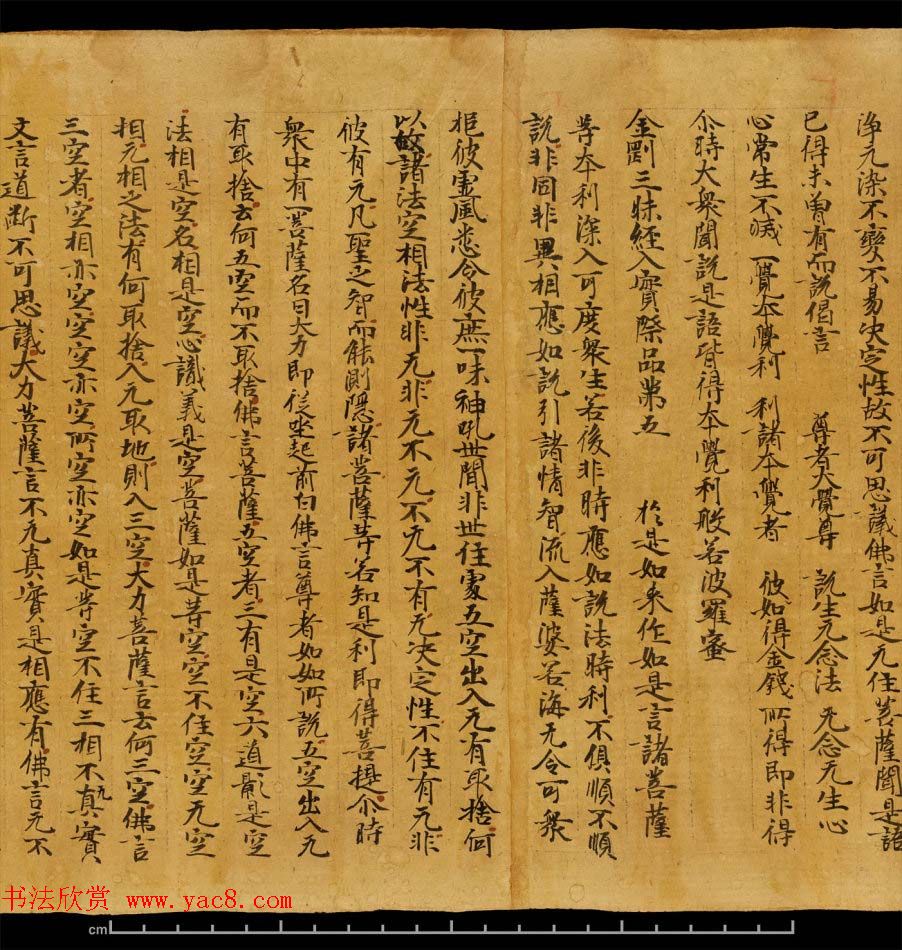 净无染不變不易决定性故不可思議佛言如是无住菩薩聞是語
已得未曾有而說偈言 尊者大覺尊 說生无念法 无念无生心
心常生不滅 一覺本覺利 利諸本覺者 彼如得金錢 所得即非得
尒時大衆聞說是語皆得本覺利般若波羅蜜
金剛三昧經入實際品第五 於是如来作如是言諸菩薩
等本利深入可度衆生若後非時應如說法時利不俱順不順
說非同非異相應如說引諸情智流入薩婆若海无令可衆
挹彼虛風悉令彼庶一味神乳世間非世住非住處五空出入无有取捨何
以故諸法空相法性非无非无不无不无不有无决定性不住有无非
彼有无凡聖之智而能測隱諸菩薩等若知是利即得菩提尒時
衆中有一菩薩名曰大力即從坐起前白佛言尊者如如所說五空出入无
有取捨云何五空而不取捨佛言菩薩五空者三有是空六道影是空
法相是空名相是空心識義是空菩薩如是等空空不住空空无空
相无相之法有何取捨入无取地則入三空大力菩薩言云何三空佛言
三空者空相亦空空空亦空所空亦空如是等空不住三相不无真實
文言道断不可思議大力菩薩言不无真實是相應有佛言无不
书法欣赏 www.yac8.com
cm